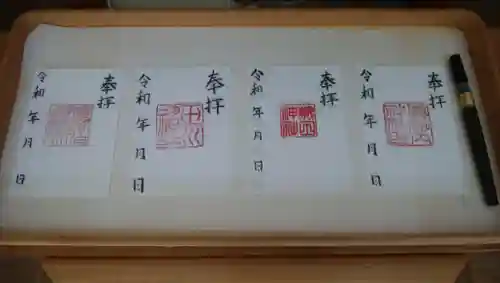 奉拝
令和 年 月 日
奉拝
令和 年 月 日
奉拝
令和 年 月 日
奉拝
令和 年 月 日